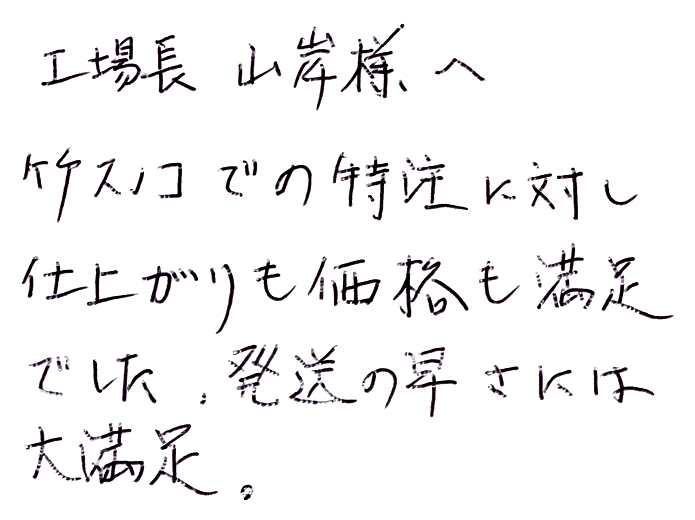 工場長 山岸様へ
竹スノコでの特注に対し
仕上がりも価格も満足
でした。発送の早さには
大満足。